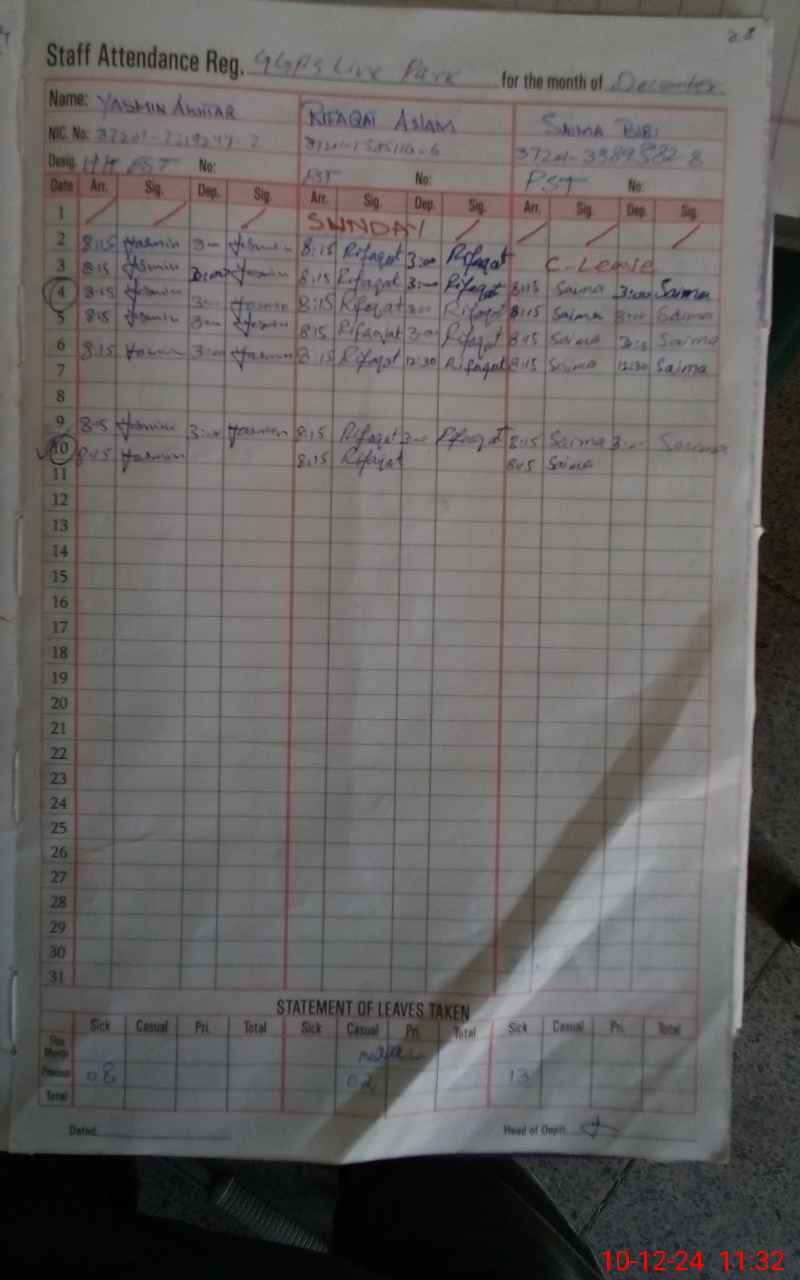 28
Staff Attendance Reg. GGPS Live Park for the month of December
Name: YASMIN AKHTAR RIFAQAT ASLAM SAIMA BIBI
NIC. No: 37201-3389582-8
Desig. PST No: PST No: PST No:
Date Arr. Sig. Dep. Sig. Arr. Sig. Dep. Sig. Arr. Sig. Dep. Sig.
1 SUNDAY
2 8:15 Yasmin 3:00 Yasmin 8:15 Rifaqat 3:00 Rifaqat C-Leave
3 8:15 Yasmin 3:00 Yasmin 8:15 Rifaqat 3:00 Rifaqat 8:15 Saima 3:00 Saima
4 8:15 Yasmin 3:00 Yasmin 8:15 Rifaqat 3:00 Rifaqat 8:15 Saima 3:00 Saima
5 8:15 Yasmin 3:00 Yasmin 8:15 Rifaqat 3:00 Rifaqat 8:15 Saima Saima
6 8:15 Yasmin 3:00 Yasmin 8:15 Rifaqat 12:30 Rifaqat 8:15 Saima 12:30 Saima
7
8
9 8:15 Yasmin 3:00 Yasmin 8:15 Rifaqat 3:00 Rifaqat 8:15 Saima 3:00 Saima
10 8:15 Yasmin 8:15 Rifaqat 8:15 Saima
11
12
13
14
15
16
17
18
19
20
21
22
23
24
25
26
27
28
29
30
31
STATEMENT OF LEAVES TAKEN
Sick Casual Pri. Total Sick Casual Pri. Total Sick Casual Pri. Total
This Month
Previous 08 02 13
Total
Dated: Head of Deptt.
10-12-24 11:32